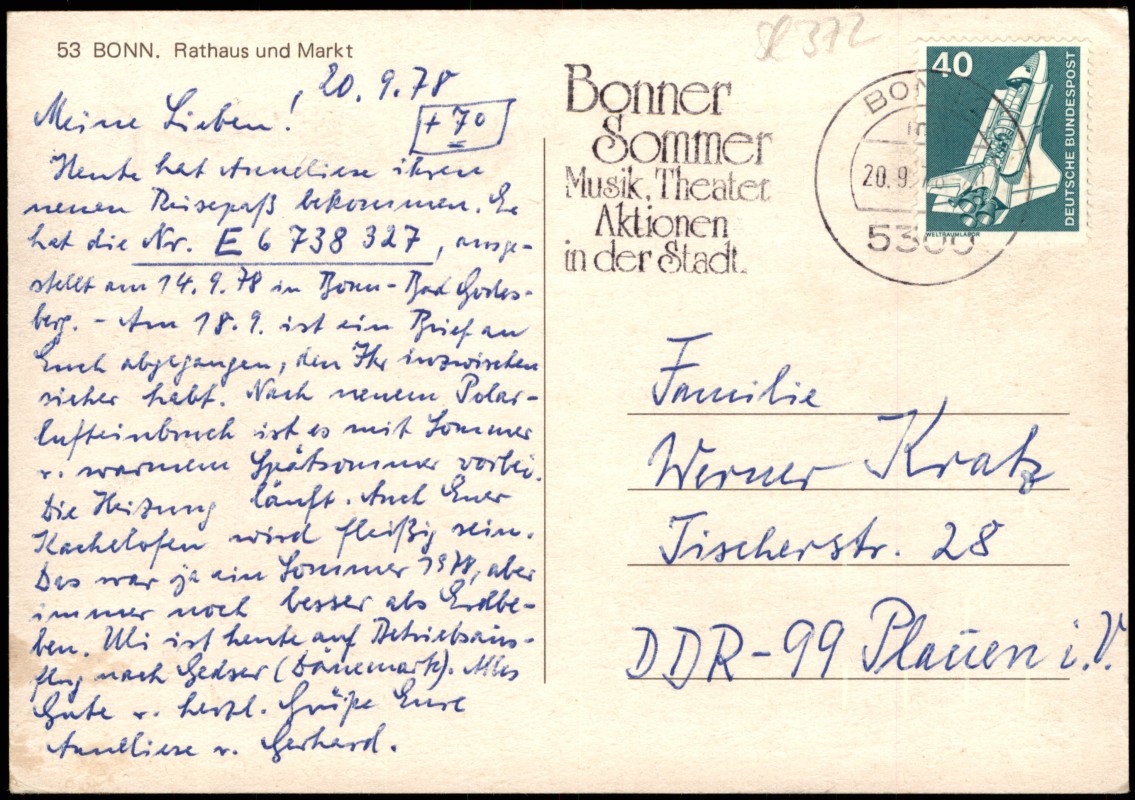 53 BONN. Rathaus und Markt
20.9.78
+ 70
Meine Lieben!
Heute hat Anneliese ihren
neuen Reisepaß bekommen. Er
hat die Nr. E 6 738 327, ausge-
stellt am 14.9.78 in Bonn-Bad Godes-
berg. - Am 18.9. ist ein Brief an
Euch abgegangen, den Ihr inzwischen
sicher habt. Nach neuem Polar-
lufteinbruch ist es mit Sommer
u. warmem Spätsommer vorbei.
Die Heizung läuft. Auch Euer
Kachelofen wird fleißig sein.
Das war ja ein Sommer 1978, aber
immer noch besser als Erdbe-
ben. Uli ist heute auf Betriebsaus-
flug nach Gedser (Dänemark). Alles
Gute u. herzl. Grüße Eure
Anneliese u. Gerhard.
372
Bonner
Sommer
Musik, Theater,
Aktionen
in der Stadt.
BONN
20.9.78
5300
40
DEUTSCHE BUNDESPOST
WELTRAUMLABOR
Familie
Werner Kratz
Tischerstr. 28
DDR-99 Plauen i.V.